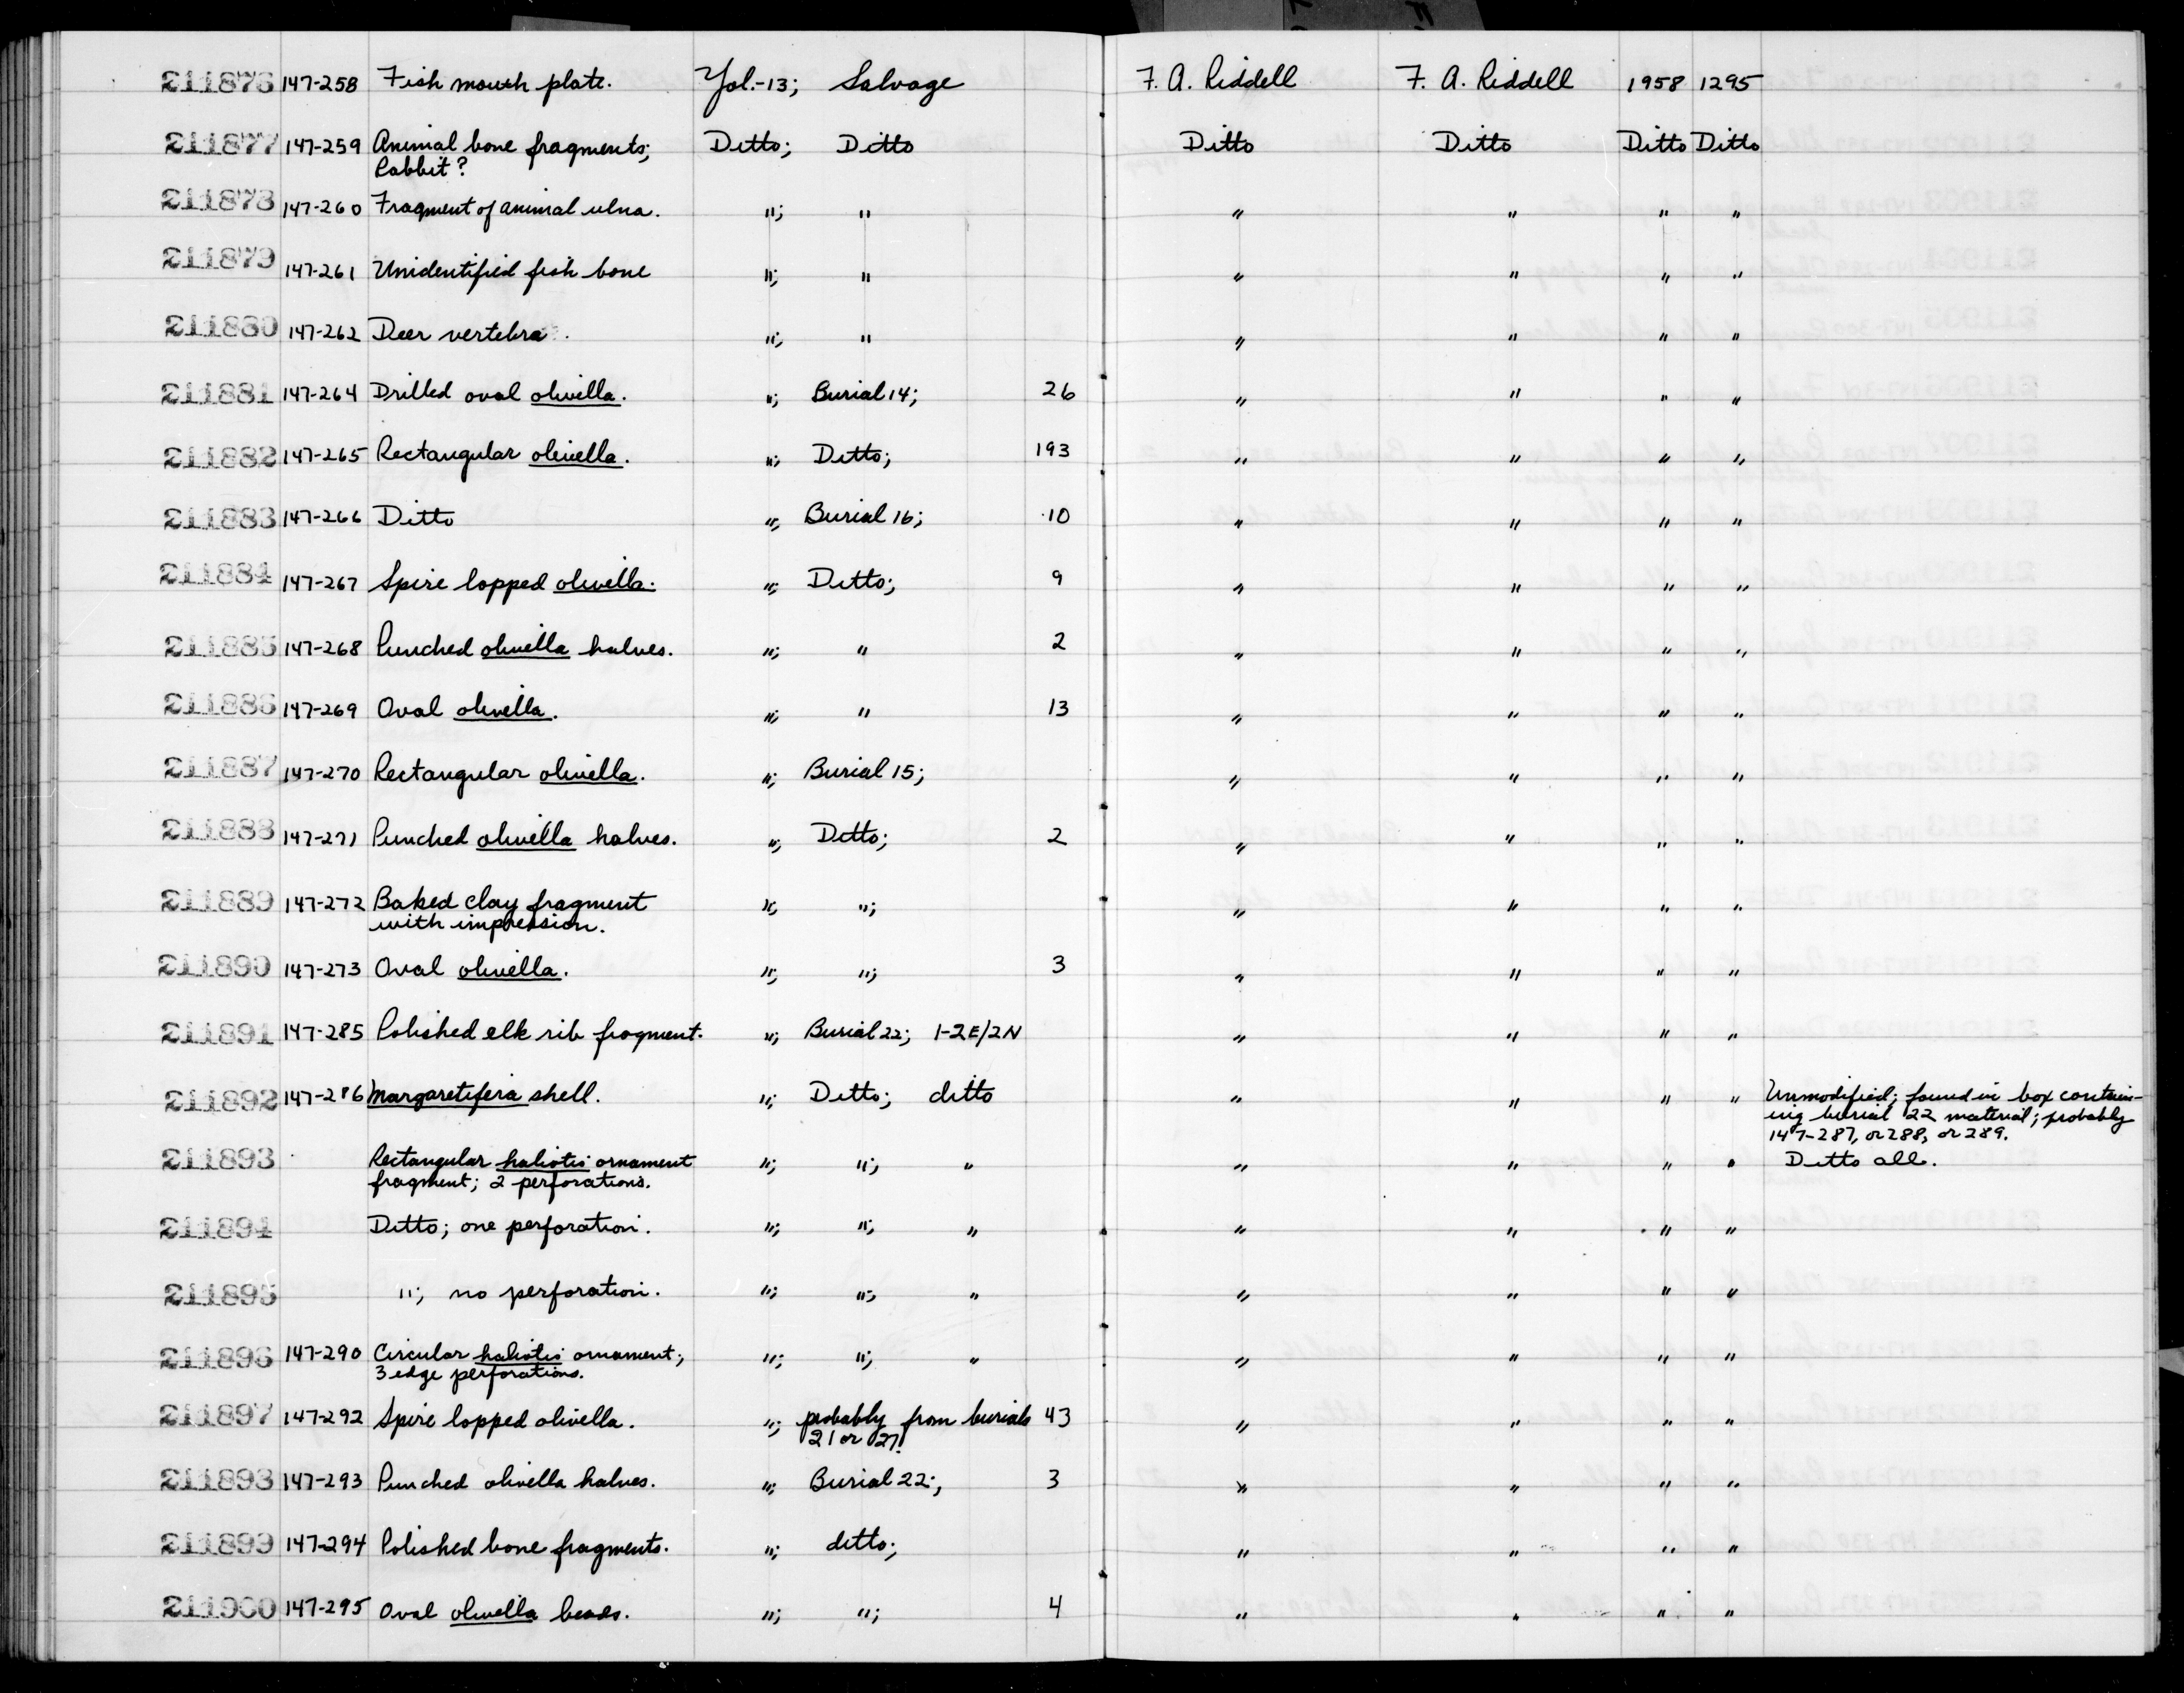 211876 147-258 Fish mouth plate. Yol.-13; Salvage F. A. Riddell F. A. Riddell 1958 1295
211877 147-259 Animal bone fragments; Ditto; Ditto Ditto Ditto Ditto Ditto
Rabbit?
211878 147-260 Fragment of animal ulna. "; " " " " "
211879 147-261 Unidentified fish bone "; " " " " "
211880 147-262 Deer vertebra. "; " " " " "
211881 147-264 Drilled oval olivella. "; Burial 14; 26 " " " "
211882 147-265 Rectangular olivella. "; Ditto; 193 " " " "
211883 147-266 Ditto "; Burial 16; 10 " " " "
211884 147-267 Spire lopped olivella. "; Ditto; 9 " " " "
211885 147-268 Punched olivella halves. "; " 2 " " " "
211886 147-269 Oval olivella. "; " 13 " " " "
211887 147-270 Rectangular olivella. "; Burial 15; " " " "
211888 147-271 Punched olivella halves. "; Ditto; 2 " " " "
211889 147-272 Baked clay fragment "; "; " " " "
with impression.
211890 147-273 Oval olivella. "; "; 3 " " " "
211891 147-285 Polished elk rib fragment. "; Burial 22; 1-2E/2N " " " "
211892 147-286 Margaretifera shell. "; Ditto; ditto " " " " Unmodified; found in box contain-
ing burial 22 material; probably
147-287, or 288, or 289.
211893 Rectangular haliotis ornament "; "; " " " " " Ditto all.
fragment; 2 perforations.
211894 Ditto; one perforation. "; "; " " " " "
211895 "; no perforation. "; "; " " " " "
211896 147-290 Circular haliotis ornament; "; "; " " " " "
3 edge perforations.
211897 147-292 Spire lopped olivella. "; probably from burials 43 " " " "
21 or 27.
211898 147-293 Punched olivella halves. "; Burial 22; 3 " " " "
211899 147-294 Polished bone fragments. "; ditto; " " " "
211900 147-295 Oval olivella beads. "; "; 4 " " " "